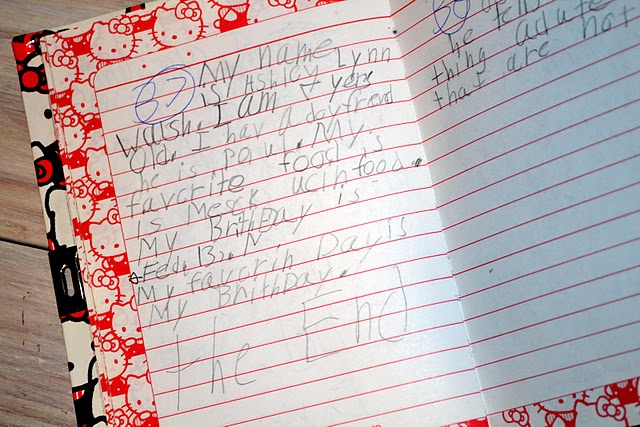 37 My name
is Ashley Lynn
Walsh. I am 7 yers
Old. I hav a dayfrend
he is Poul. My
favorite food is
is Mesck ucinfood.
My BrithDay is
Fed. 13.
My favorih Day is
My BrithDay.
the End
he tells
thing adute
that are not